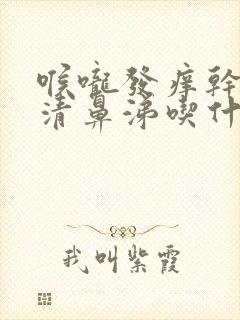 喉嚨發癢幹
清鼻涕喫什
我叫紫霞